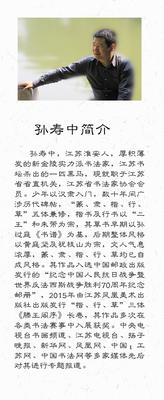 孙寿中简介
孙寿中，江苏淮安人，厚积薄
发的新金陵实力派书法家，江苏书
坛杀出的一匹黑马，现就职于江苏
省省直机关，江苏省书法家协会会
员。少年以汉隶入门，数十年间广
涉历代碑帖，“篆、隶、楷、行、
草”五体兼修，楷书及行书以“二
王”和米芾为宗，其草书早期以孙
过庭《书谱》为基，后期整体风格
以黄庭坚及祝枝山为宗，文人气息
浓厚，篆、隶、楷、行、草均已自
成风格。其作品入选中国邮政出版
发行的“纪念中国人民抗日战争暨
世界反法西斯战争胜利70周年纪念
邮册”，2015年由江苏凤凰美术出
版社出版发行“楷、行、草”三体
《滕王阁序》长卷，其作品多次在
各类书法赛事中入展获奖。中央电
视台书画频道、江苏电视台、扬子
晚报、新华网、凤凰网、中国江
苏网、中国书法网等多家媒体先后
对其进行专题报道。